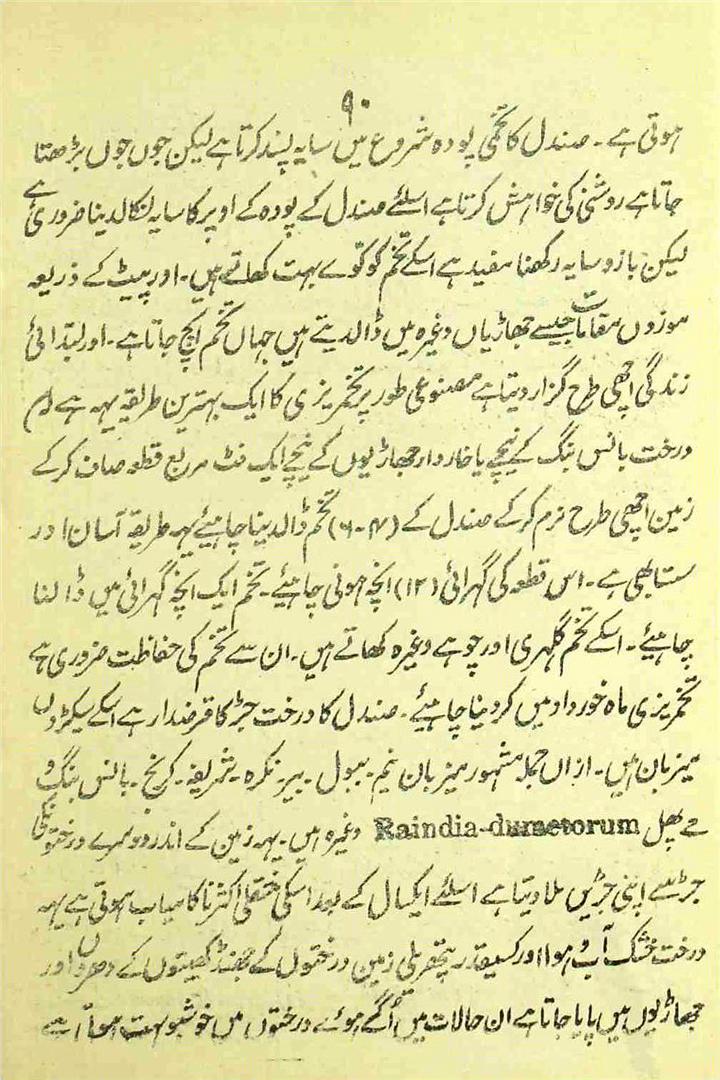 ۹۰
ہوتی ہے ۔ صندل کا تخمی پودہ شروع میں سایہ پسند کرتا ہے لیکن جوں جوں بڑھتا
جاتا ہے روشنی کی خواہش کرتا ہے اسلئے صندل کے پودہ کے اوپر کا سایہ نکالدینا ضروری ہے
لیکن بازو سایہ رکھنا مفید ہے اسکے تخم کو کوّے بہت کھاتے ہیں ۔ اور پیٹ کے ذریعہ
موزوں مقامات جیسے جھاڑیاں وغیرہ میں ڈالدیتے ہیں جہاں تخم اُپج جاتا ہے ۔ اور ابتدائی
زندگی اچھی طرح گزار دیتا ہے مصنوعی طور پر تخمریزی کا ایک بہترین طریقہ یہہ ہے
درخت بانس بنگ کے نیچے یا خاردار جھاڑیوں کے نیچے ایک فٹ مربع قطعہ صاف کرکے
زمین اچھی طرح نرم کرکے صندل کے (۴-۶) تخم ڈالدینا چاہیئے یہہ طریقہ آسان اور
سستا بھی ہے ۔ اس قطعہ کی گہرائی (۱۲) انچہ ہونی چاہیئے ۔ تخم ایک انچہ گہرائی میں ڈالنا
چاہیئے ۔ اسکے تخم گلہری اور چوہے وغیرہ کھاتے ہیں ۔ ان سے تخم کی حفاظت ضروری ہے
تخمریزی ماہ خورداد میں کردینا چاہیئے ۔ صندل کا درخت جڑ کا قرضدار ہے اسکے سیکڑوں
میزبان ہیں ۔ ازاں جملہ مشہور میزبان نیم ۔ ببول ۔ بیر نکرہ ۔ شریفہ ۔ کرنج ۔ بانس بنگ و
مے پھل Raindia-dumetorum وغیرہ ہیں ۔ یہہ زمین کے اندر دوسرے درختوں کی
جڑ سے اپنی جڑیں ملا دیتا ہے اسلئے ایکسال کے بعد اسکی منتقلی اکثر ناکامیاب ہوتی ہے یہہ
درخت خشک آب و ہوا اور کسیقدر پتھریلی زمین درختوں کے جھنڈ کھیتوں کے دھروں اور
جھاڑیوں میں پایا جاتا ہے ان حالات میں اُگے ہوئے درختوں میں خوشبو بہت ہوتا ہے